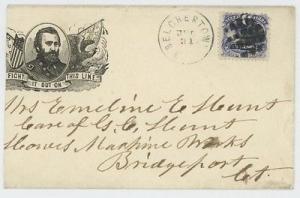 BELCHERTOWN
31
FIGHT IT OUT ON THIS LINE
Mrs Emeline E Hunt
Care of G. C. Hunt
Howes Machine Works
Bridgeport
Ct.